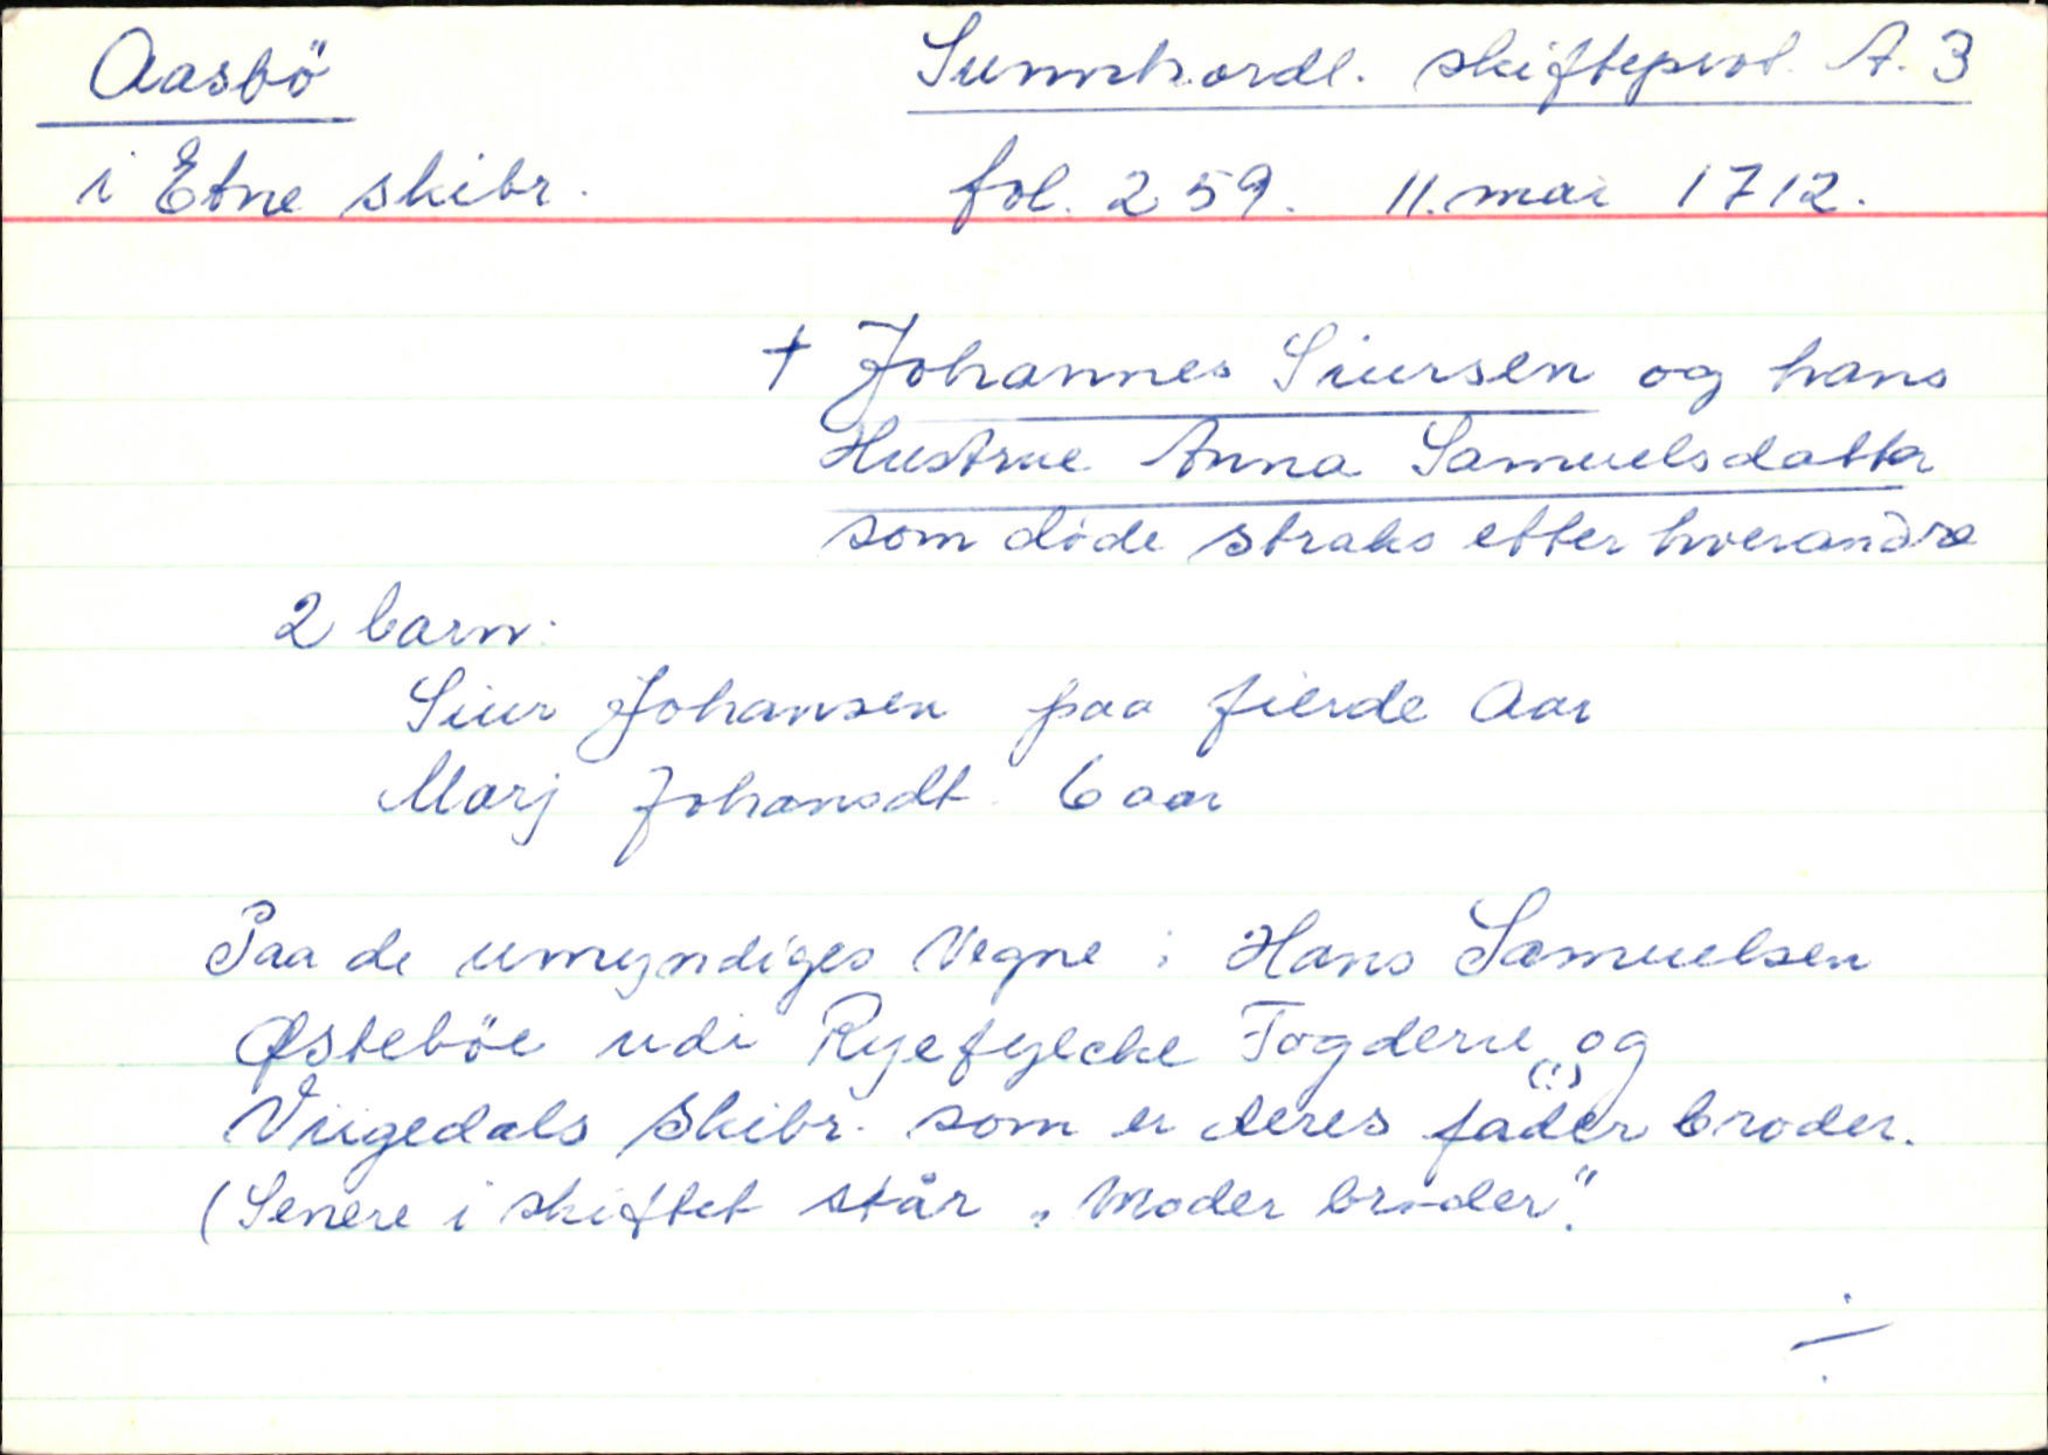 Aasbö
Sunnhordl. skifteprot. A. 3
i Etne skibr.
fol. 259. 11. mai 1712.
† Johannes Siursen og hans
Hustrue Anna Samuelsdatter
som döde straks etter hverandre
2 barn:
Siur Johansen paa fierde Aar
Marj Johansdt. 6 aar
Paa de umyndiges Vegne: Hans Samuelsen
Østeböe udi Ryefylcke Fogderie og
Viigedals Skibr. som er deres fader (!) broder.
(Senere i skiftet står "Moder broder".